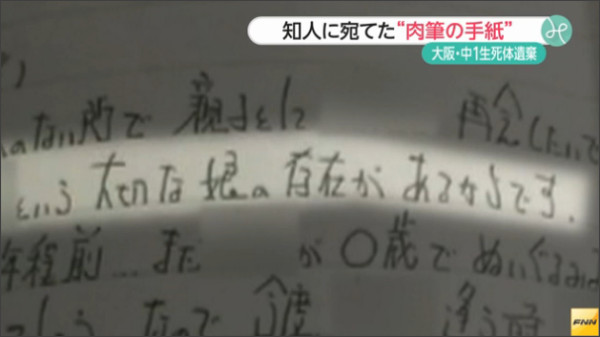 知人に宛てた“肉筆の手紙”
大阪・中1生死体遺棄
のない所で 親子として 再会したいで
という 大切な娘の存在が あるからです。
年程前… まだ が〇歳で ぬいぐるみ
なので 今度 逢う時
FNN